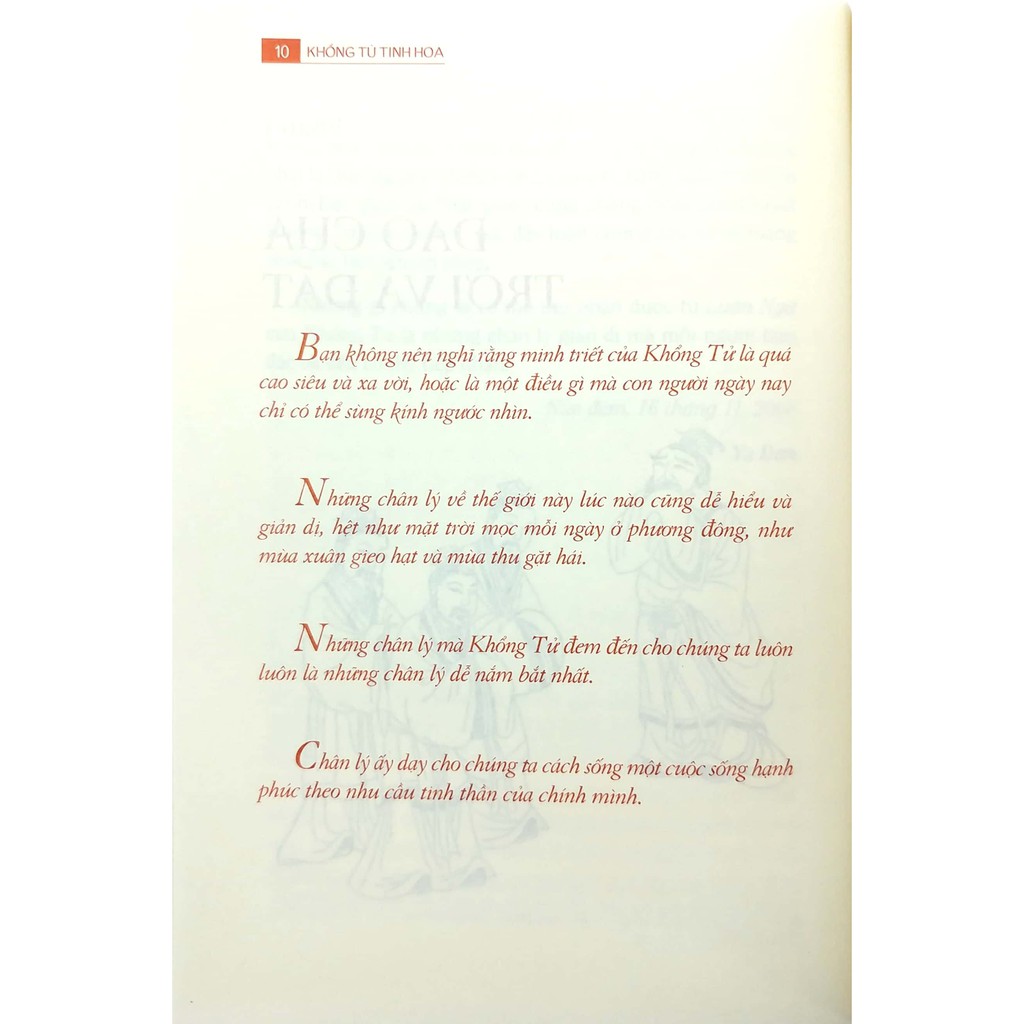 10 KHỔNG TỬ TINH HOA
ĐẠO CỦA
TRỜI VÀ ĐẤT
Bạn không nên nghĩ rằng minh triết của Khổng Tử là quá
cao siêu và xa vời, hoặc là một điều gì mà con người ngày nay
chỉ có thể sùng kính ngước nhìn.
Những chân lý về thế giới này lúc nào cũng dễ hiểu và
giản dị, hệt như mặt trời mọc mỗi ngày ở phương đông, như
mùa xuân gieo hạt và mùa thu gặt hái.
Những chân lý mà Khổng Tử đem đến cho chúng ta luôn
luôn là những chân lý dễ nắm bắt nhất.
Chân lý ấy dạy cho chúng ta cách sống một cuộc sống hạnh
phúc theo nhu cầu tinh thần của chính mình.